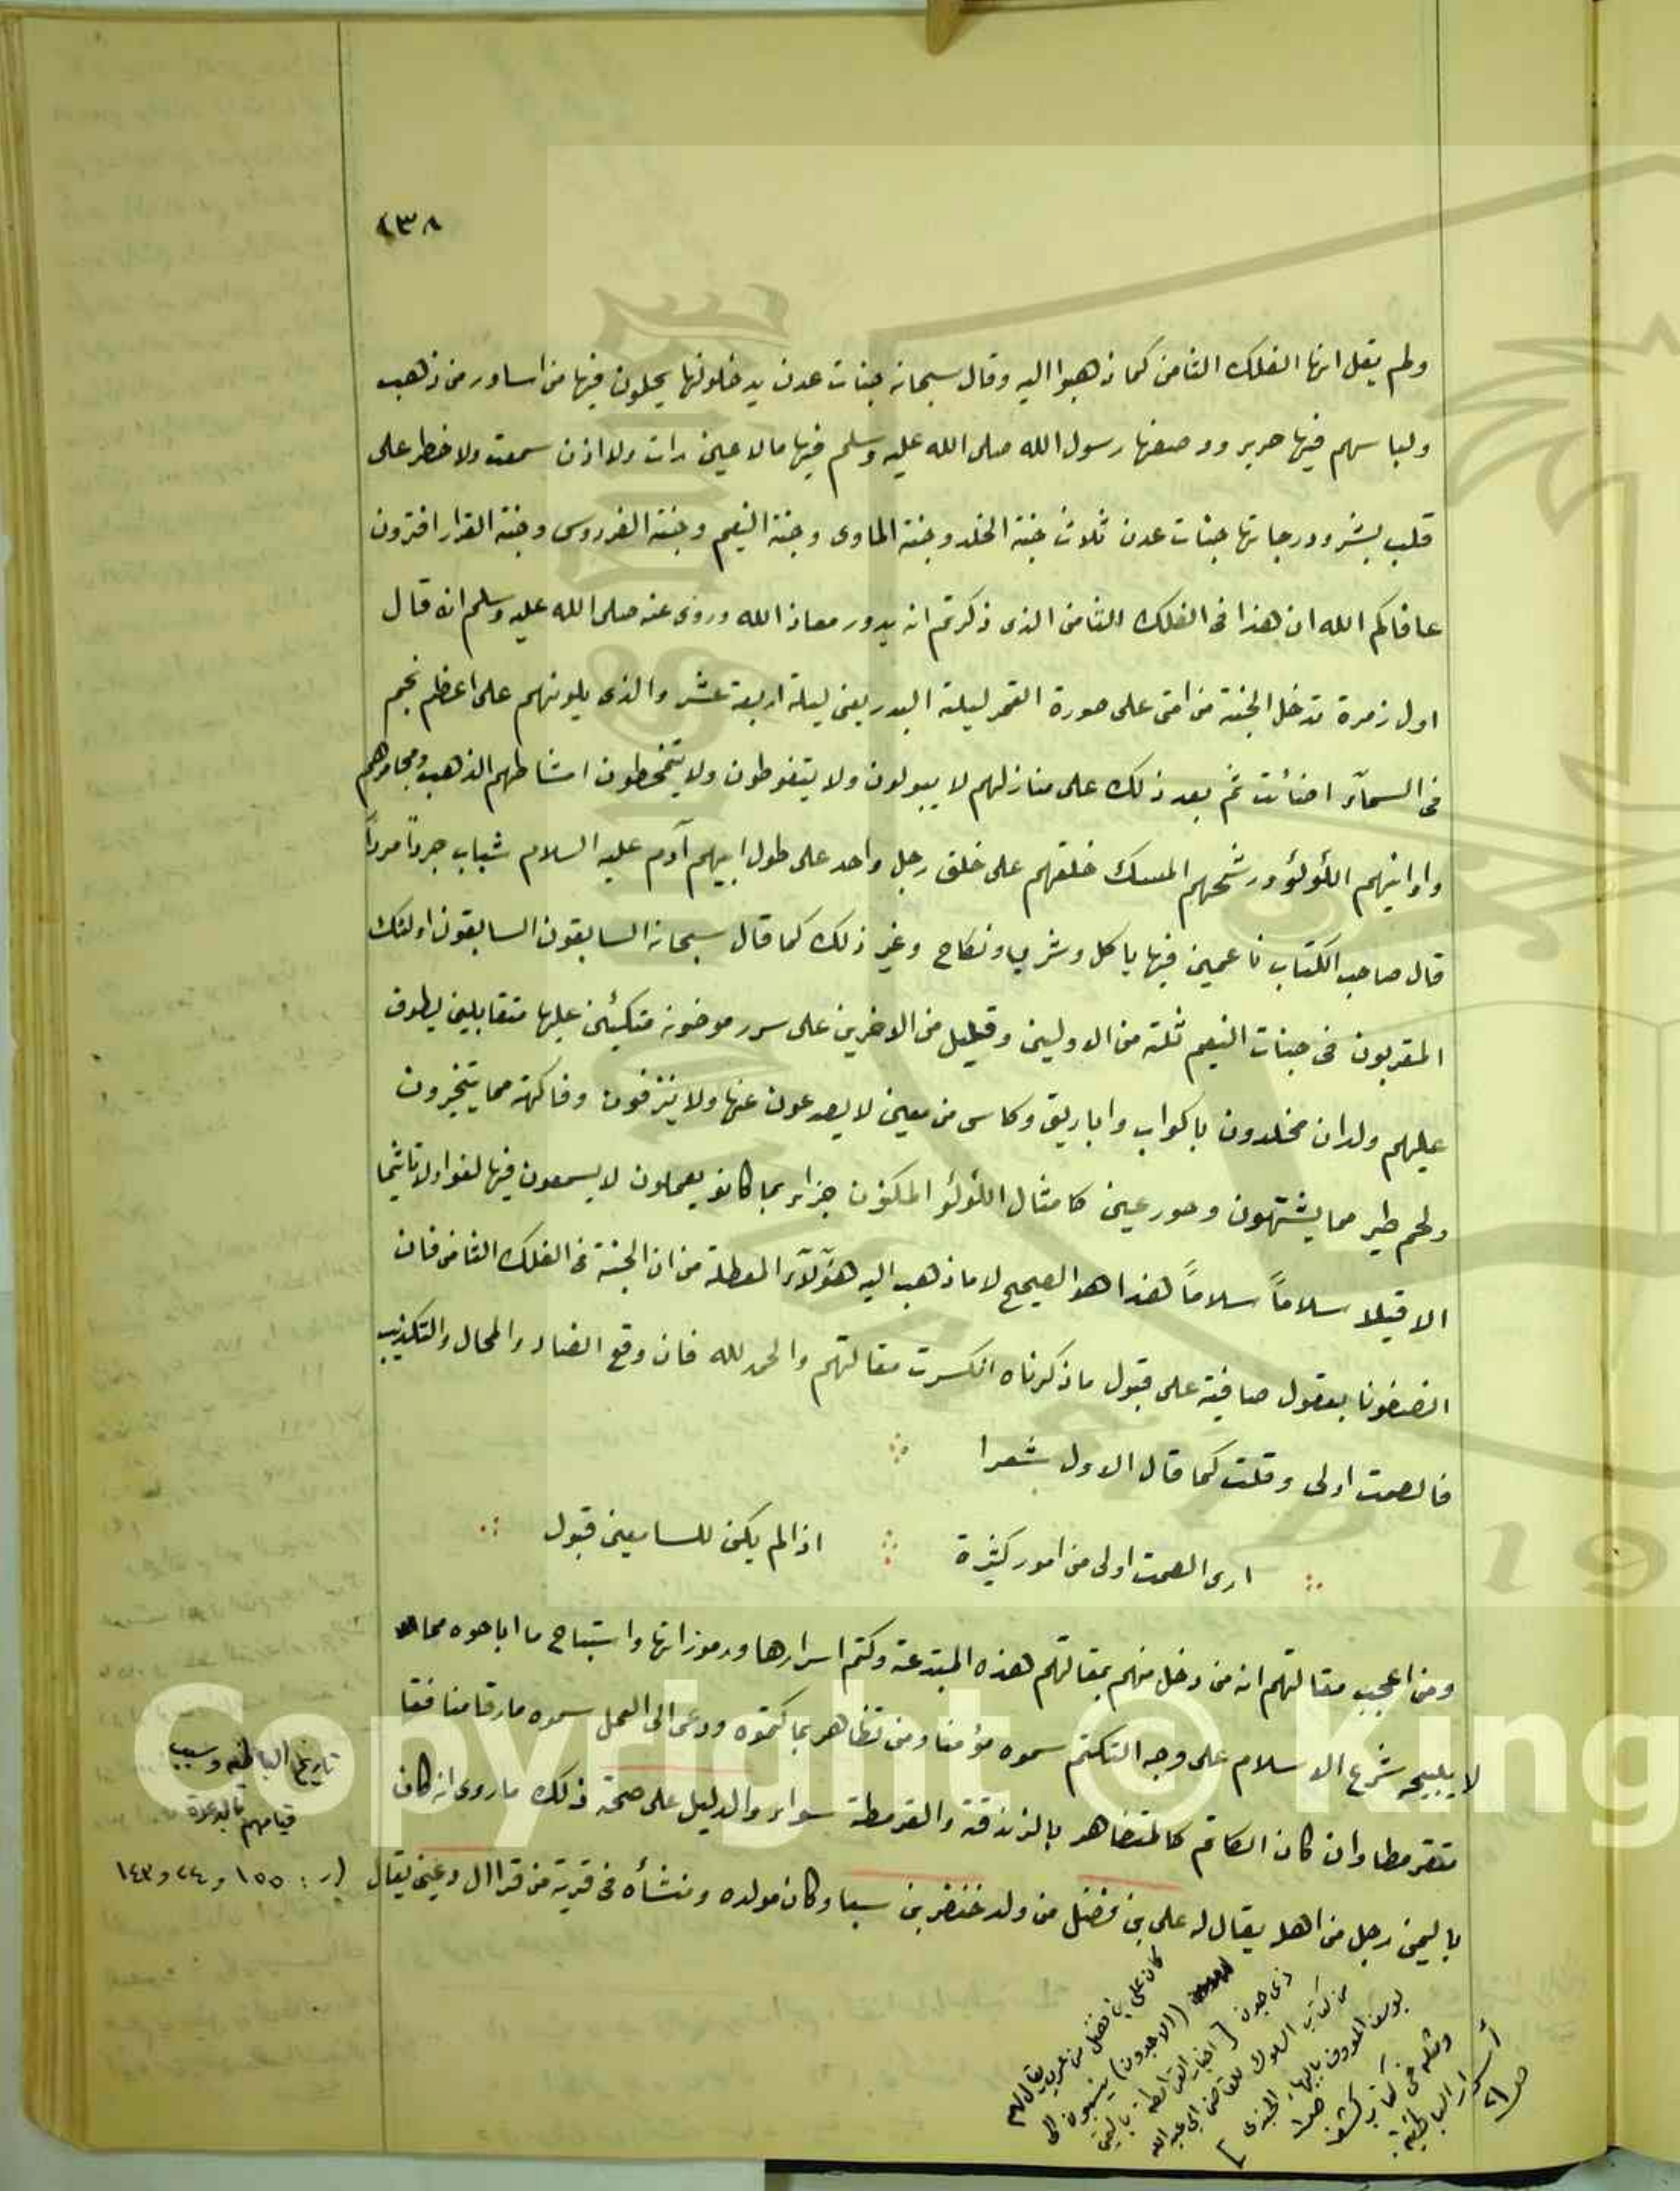 ٤٣٨
ولم يقل انها الفلك الثامن كما ذهبوا اليه وقال سبحانه جنات عدن يدخلونها يحلون فيها من اساور من ذهب
ولباسهم فيها حرير ووصفها رسول الله صلى الله عليه وسلم فيها مالا عين رات ولا اذن سمعت ولا خطر على
قلب بشر ودرجاتها جنات عدن ثلاث جنة الخلد وجنة الماوى وجنة النعيم وجنة الفردوس وجنة القرار افترون
عافاكم الله ان هذا فى الفلك الثامن الذى ذكرتم انه يدور معاذ الله وروى عنه صلى الله عليه وسلم انه قال
اول زمرة تدخل الجنة من امتى على صورة القمر ليلة البدر يعنى ليلة اربعة عشر والذى يلونهم على اعظم نجم
فى السمآء اضائت ثم بعد ذلك على منازلهم لا يبولون ولا يتغوطون ولا يتمخطون امشاطهم الذهب ومجامرهم
واوانيهم اللؤلؤ ورشحهم المسك خلقهم على خلق رجل واحد على طول ابيهم آدم عليه السلام شباب جرداً مرداً
قال صاحب الكتاب ناعمين فيها باكل وشرب ونكاح وغير ذلك كما قال سبحانه السابقون السابقون اولئك
المقربون فى جنات النعيم ثلة من الاولين وقليل من الاخرين على سرر موضونة متكئين عليها متقابلين يطوف
عليهم ولدان مخلدون باكواب واباريق وكاس من معين لا يصدعون عنها ولا ينزفون وفاكهة مما يتخيرون
ولحم طير مما يشتهون وحور عين كامثال اللؤلؤ المكنون جزاء بما كانو يعملون لا يسمعون فيها لغوا ولا تاثيما
الا قيلا سلاماً سلاماً هذا هو الصحيح لا ما ذهب اليه هؤلآء المعطلة من ان الجنة فى الفلك الثامن فان
انصفونا بعقول صافية على قبول ما ذكرناه انكسرت مقالتهم والحمد لله فان وقع العناد والمحال والتكذيب
فالصمت اولى وقلت كما قال الاول شعرا
ارى الصمت اولى من امور كثيرة اذا لم يكن للسامعين قبول
ومن اعجب مقالتهم انه من دخل منهم بمقالتهم هذه المبتدعة وكتم اسرارها ورموزاتها واستباح ما اباحوه مما
لا يبيحه شرع الاسلام على وجه التكتم سموه مؤمنا ومن تظاهر بما كتموه ودعى الى العمل سموه مارقا منافقا
متقرمطا وان كان الكاتم كالمتظاهر بالزندقة والقرمطة سواء والدليل على صحة ذلك ماروى انه كان
باليمن رجل من اهله يقال له على بن فضل من ولد خنفر بن سبا وكان مولده ومنشأه فى قرية من قرا يقال
تاريخ الباطنية وسبب
قيامهم بالدعوة
(ر: ١٥٥ و ٢٤ و ١٤٣
كان على بن فضل من عرب يقال لهم
(الاجدون) ينسبون الى
ذى جدن [اخبار القرامطة باليمن
من كتاب السلوك للقاضى ابى عبد الله
يوسف المعروف بالبهاء الجندى]
ومثله فى كتاب كشف
أسرار الباطنية
ص٢١
Copyright © King